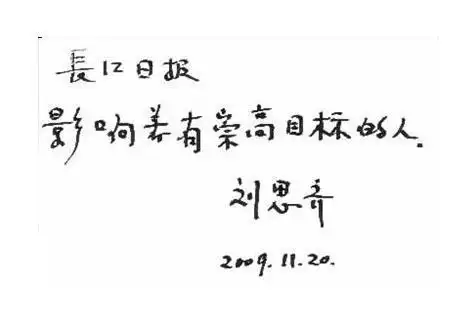 長江日报
影响着有崇高目标的人.
刘思齐
2009.11.20.